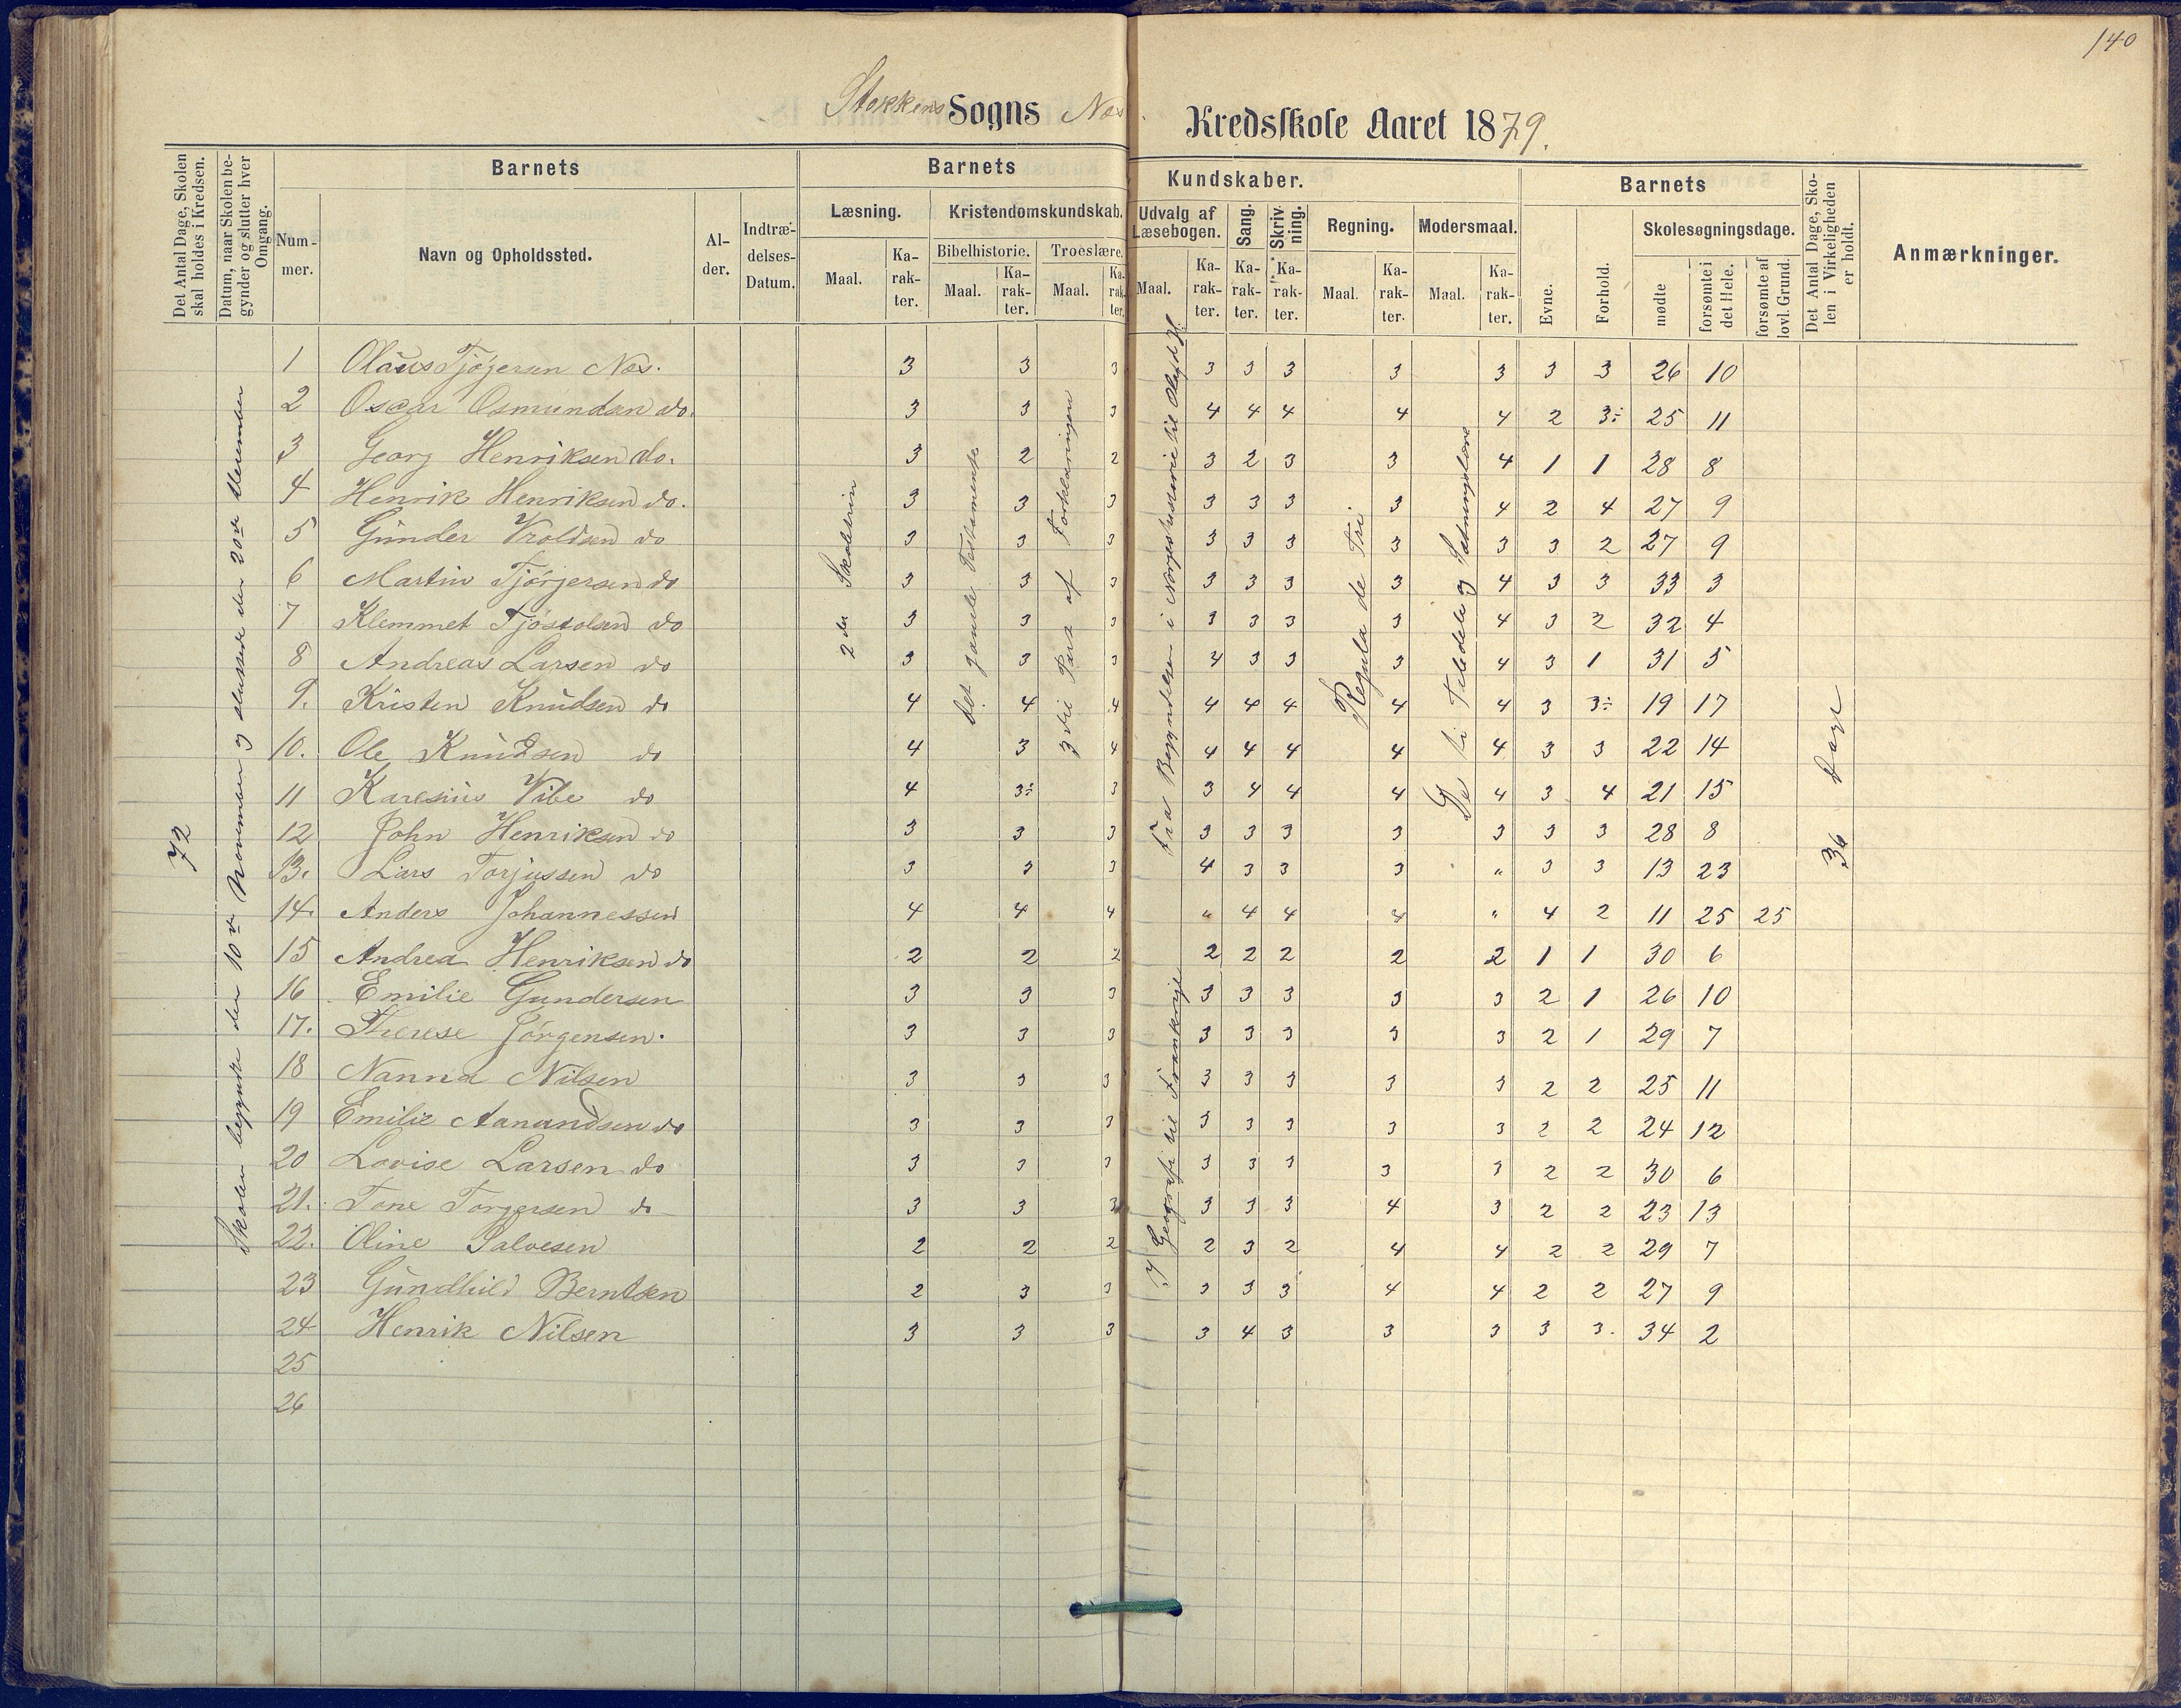 140
Stokkens Sogns Næs Kredsskole Aaret 1879.
Det Antal Dage, Skolen skal holdes i Kredsen.
Datum, naar Skolen begynder og slutter hver Omgang.
Barnets
Nummer.
Navn og Opholdssted.
Alder.
Indtrædelses-Datum.
Barnets Kundskaber.
Læsning.
Maal.
Karakter.
Kristendomskundskab.
Bibelhistorie.
Maal.
Karakter.
Troeslære.
Maal.
Karakter.
Udvalg af Læsebogen.
Maal.
Karakter.
Sang.
Karakter.
Skrivning.
Karakter.
Regning.
Maal.
Karakter.
Modersmaal.
Maal.
Karakter.
Barnets
Evne.
Forhold.
Skolesøgningsdage.
mødte
forsømte i det Hele.
forsømte af lovl. Grund.
Det Antal Dage, Skolen i Virkeligheden er holdt.
Anmærkninger.
72
Skolen begyndte den 10de November og sluttede den 20de December
2den Skoletrin
det gamle Testamente
3die Part af Forklaringen
Fra Begyndelsen i Norgeshistorie til
I Geografi til Frankrige
Regula de Tri
De ti Taledele og Sætningslære
36 Dage
1 Olaus Tjøgersen Næs. 3 3 3 3 3 3 3 3 3 3 26 10
2 Oscar Osmundsen do. 3 3 3 4 4 4 4 4 2 3÷ 25 11
3 Georg Henriksen do. 3 2 2 3 2 3 3 4 1 1 28 8
4 Henrik Henriksen do. 3 3 3 3 3 3 3 4 2 4 27 9
5 Gunder Vroldsen do 3 3 3 3 3 3 3 3 3 2 27 9
6 Martin Tjørgersen do 3 3 3 3 3 3 3 4 3 3 33 3
7 Klemmet Tjøstolsen do 3 3 3 3 3 3 3 4 3 2 32 4
8 Andreas Larsen do 3 3 3 4 3 3 3 4 3 1 31 5
9. Kristen Knudsen do 4 4 4 4 4 4 4 4 3 3÷ 19 17
10. Ole Knudsen do 4 3 4 4 4 4 4 4 3 3 22 14
11 Karesius Vibe do 4 3÷ 3 3 4 4 4 4 3 4 21 15
12 John Henriksen do 3 3 3 3 3 3 3 3 3 3 28 8
13. Lars Torjussen do 3 3 3 4 3 3 3 " 3 3 13 23
14. Anders Johannessen 4 4 4 " 4 4 4 " 4 2 11 25 25
15 Andrea Henriksen do 2 2 2 2 2 2 2 2 1 1 30 6
16 Emilie Gundersen 3 3 3 3 3 3 3 3 2 1 26 10
17. Therese Jørgensen. 3 3 3 3 3 3 3 3 2 1 29 7
18 Nanna Nilsen 3 3 3 3 3 3 3 3 2 2 25 11
19 Emilie Aanandsen do 3 3 3 3 3 3 3 3 2 2 24 12
20 Lovise Larsen do 3 3 3 3 3 3 3 3 2 2 30 6
21. Tone Torgersen do 3 3 3 3 3 3 4 3 2 2 23 13
22. Oline Salvesen 2 2 2 2 3 2 4 4 2 2 29 7
23 Gundhild Berntsen 2 3 3 3 3 3 4 4 2 2 27 9
24 Henrik Nilsen 3 3 3 3 4 3 3 3 3 3. 34 2
25
26